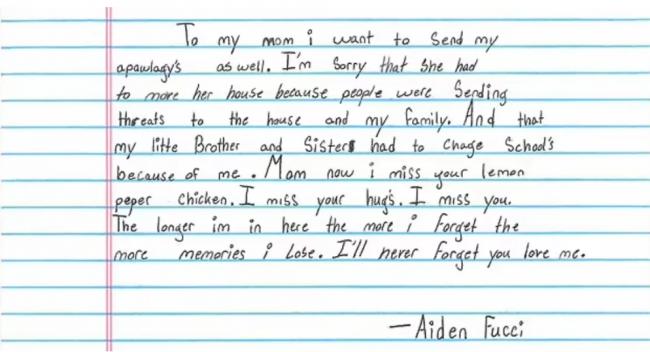 To my mom i want to Send my
apawlagy's as well. I'm Sorry that She had
to more her house because people were Sending
threats to the house and my family. And that
my litte Brother and Sisters had to chage School's
because of me. Mom now i miss your lemon
peper chicken. I miss your hug's. I miss you.
The longer im in here the more i forget the
more memories i Lose. I'll never forget you love me.
—Aiden Fucci